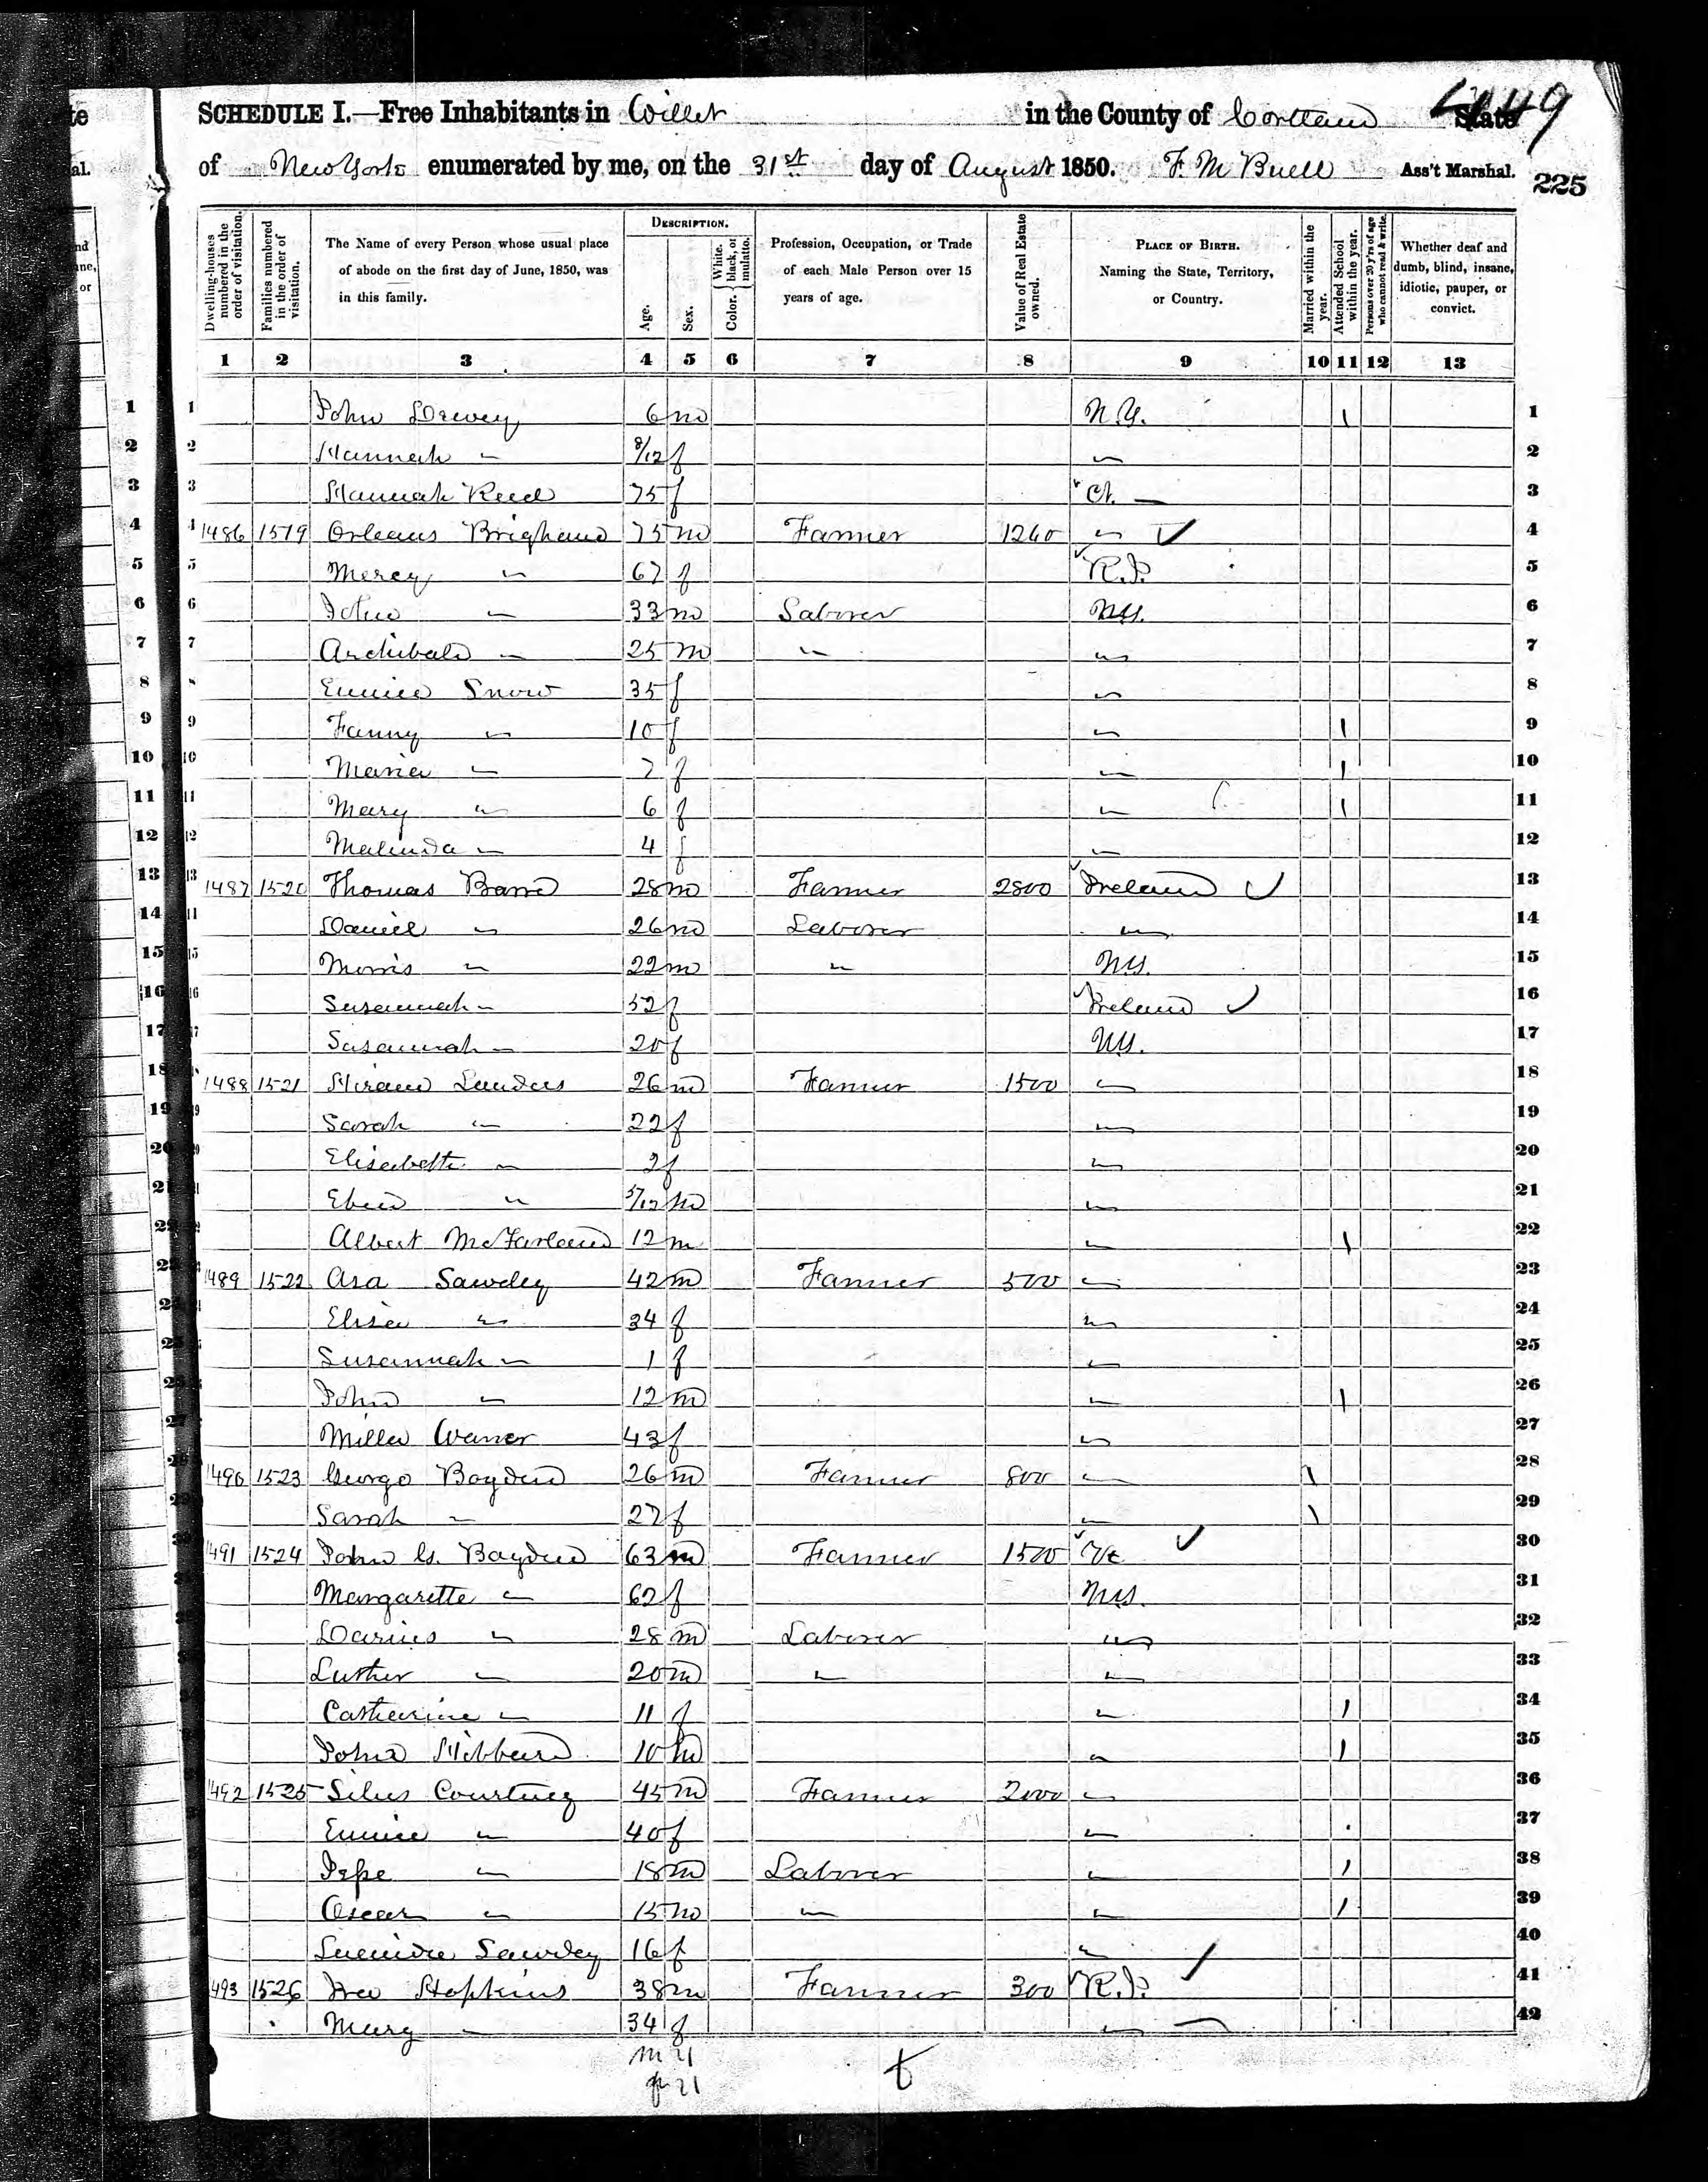 SCHEDULE I.—Free Inhabitants in Willet in the County of Cortland State 449
of New York enumerated by me, on the 31st day of August 1850. F. M Buell Ass't Marshal. 225
Dwelling-houses numbered in the order of visitation. Families numbered in the order of visitation. The Name of every Person whose usual place of abode on the first day of June, 1850, was in this family. DESCRIPTION. Age. Sex. Color. White, black, or mulatto. Profession, Occupation, or Trade of each Male Person over 15 years of age. Value of Real Estate owned. PLACE OF BIRTH. Naming the State, Territory, or Country. Married within the year. Attended School within the year. Persons over 20 y'rs of age who cannot read & write. Whether deaf and dumb, blind, insane, idiotic, pauper, or convict.
1 2 3 4 5 6 7 8 9 10 11 12 13
1 John Dewey 6 m N.Y. 1 1
2 Hannah " 8/12 f " 2
3 Hannah Reed 75 f Ct. 3
4 1486 1519 Orleans Brigham 75 m Farmer 1260 " 4
5 Mercy " 67 f R.I. 5
6 John " 33 m Laborer N.Y. 6
7 Archibald " 25 m " " 7
8 Eunice Snow 35 f " 8
9 Fanny " 10 f " 1 9
10 Maria " 7 f " 1 10
11 Mary " 6 f " 1 11
12 Malinda " 4 f " 12
13 1487 1520 Thomas 28 m Farmer 2800 Ireland 13
14 Daniel " 26 m Laborer " 14
15 Morris " 22 m " N.Y. 15
16 Susannah " 52 f Ireland 16
17 Susannah " 20 f N.Y. 17
18 1488 1521 Hiram Landers 26 m Farmer 1500 " 18
19 Sarah " 22 f " 19
20 Elisabeth " 2 f " 20
21 Eben " 5/12 m " 21
22 Albert McFarland 12 m " 1 22
23 1489 1522 Asa Sawdey 42 m Farmer 500 " 23
24 Elisa " 34 f " 24
25 Susannah " 1 f " 25
26 John " 12 m " 1 26
27 Milla Warner 43 f " 27
28 1490 1523 George Boyden 26 m Farmer 800 " 1 28
29 Sarah " 22 f " 1 29
30 1491 1524 John G. Boyden 63 m Farmer 1500 Vt 30
31 Margarette " 62 f N.Y. 31
32 Darius " 28 m Laborer " 32
33 Luther " 20 m " " 33
34 Catharine " 11 f " 1 34
35 John Hibbard 10 m " 1 35
36 1492 1525 Silus Courtney 45 m Farmer 2000 " 36
37 Eunice " 40 f " 37
38 Jesse " 18 m Laborer " 1 38
39 Oscar " 15 m " " 1 39
40 Lucinda Sawdey 16 f " 40
41 1493 1526 Ira Hopkins 38 m Farmer 300 R.I. 41
42 Mary " 34 f " 42
m 21
f 21